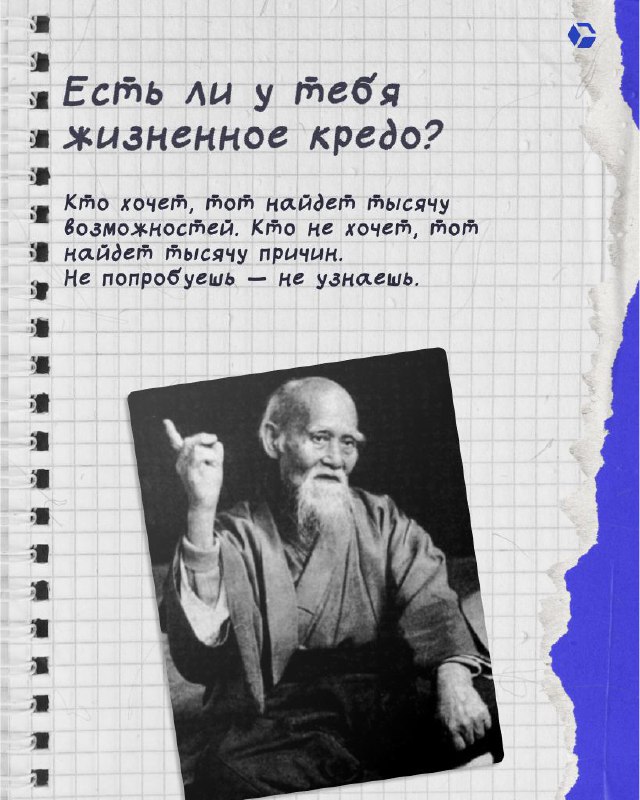 Есть ли у тебя
жизненное кредо?
Кто хочет, тот найдет тысячу
возможностей. Кто не хочет, тот
найдет тысячу причин.
Не попробуешь — не узнаешь.